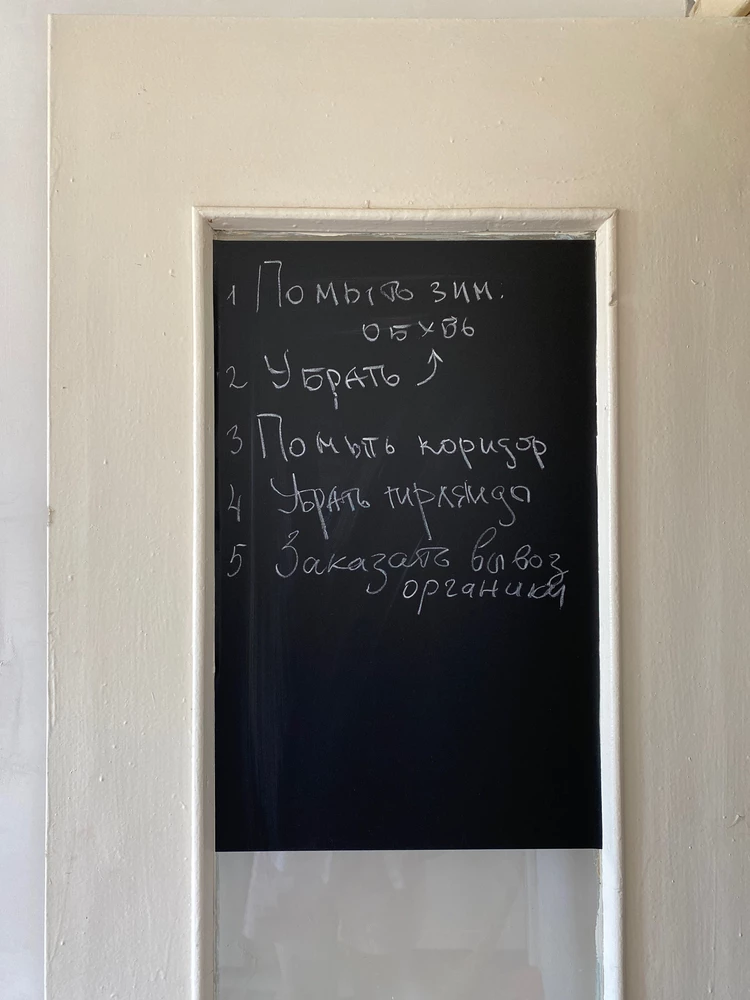 1 Помыть зим.
обувь
2 Убрать ⤴
3 Помыть коридор
4 Убрать гирлянду
5 Заказать вывоз
органики